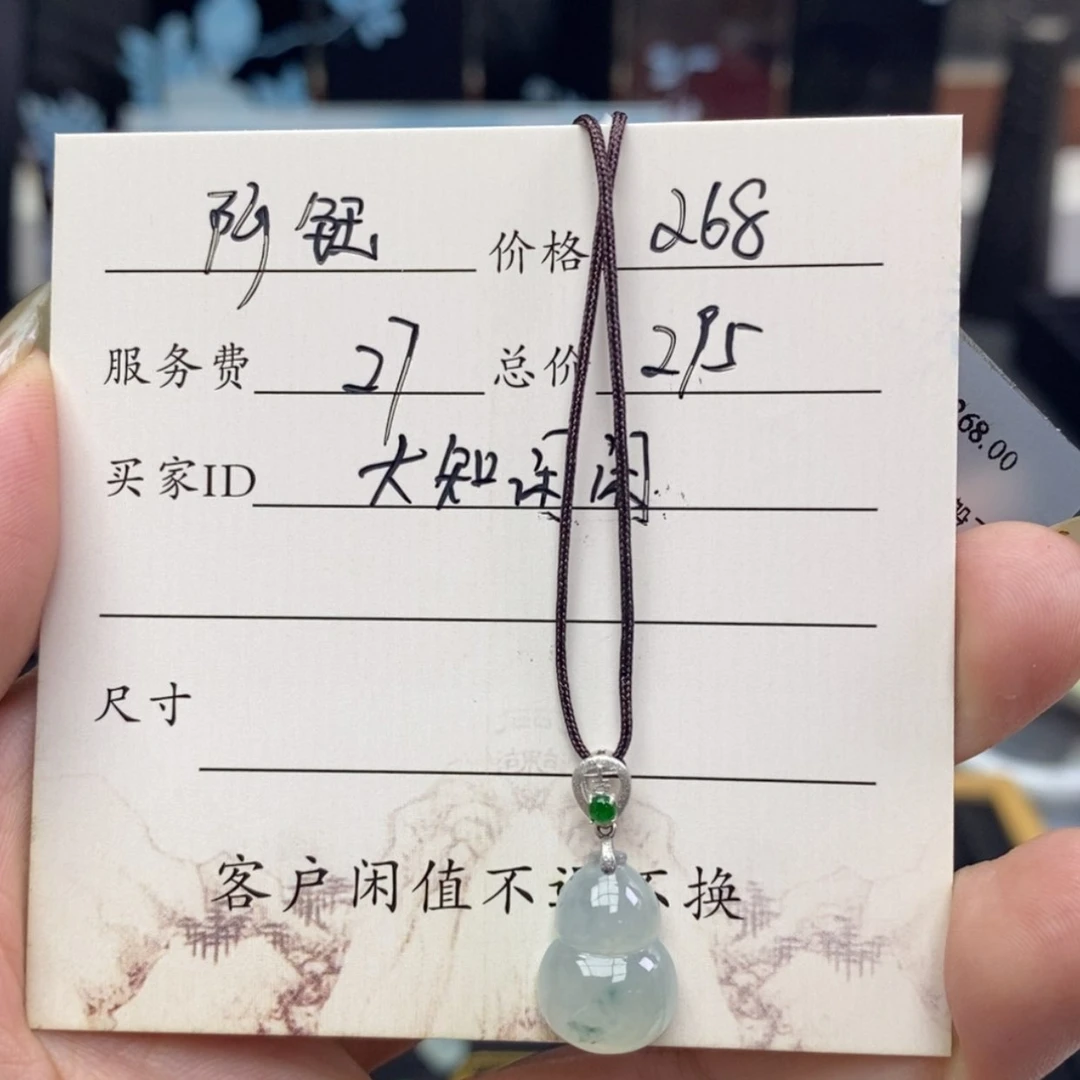 价格 268
服务费 27 总价 295
买家ID 大知闲闲
尺寸
客户闲值不退不换
268.00